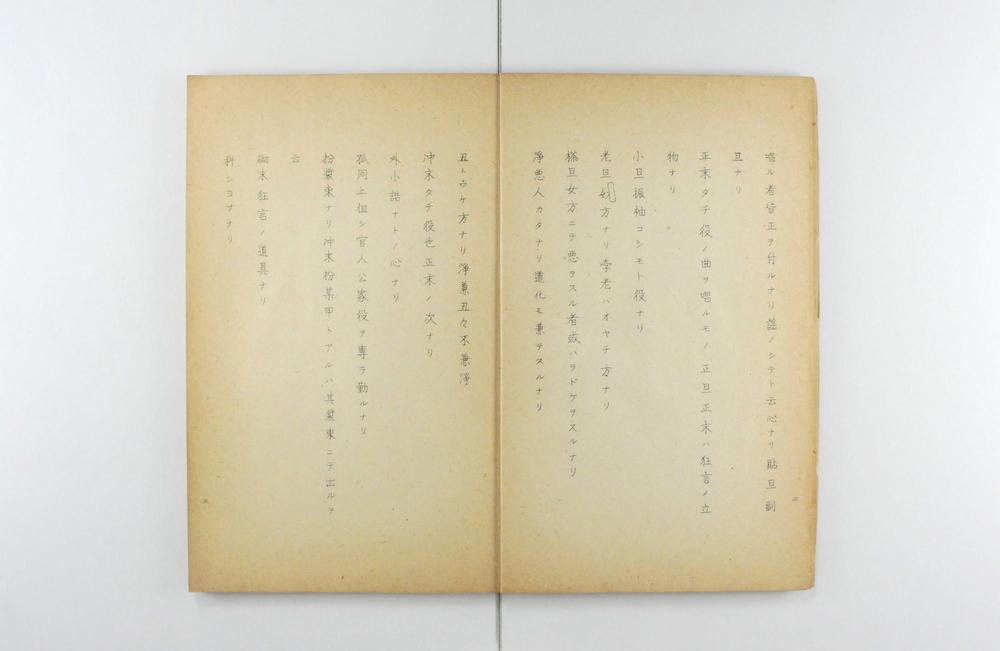 唱ル者皆正ヲ付ルナリ謡ノシテト云心ナリ貼旦副
旦ナリ
正末タチ役ノ曲ヲ唱ルモノ正旦正末ハ狂言ノ立
物ナリ
小旦振袖コシモト役ナリ
老旦方ナリ孛老ハオヤヂ方ナリ
搽旦女方ニテ悪ヲスル者或ハヲドケヲスルナリ
浄悪人カタナリ道化モ兼テスルナリ
丑トウケ方ナリ浄兼丑々不兼浄
冲末タチ役也正末ノ次ナリ
外小詰ナトノ心ナリ
孤同上但シ官人公家役ヲ専ラ勤ルナリ
扮裝束ナリ冲末扮某甲トアルハ其裝束ニテ出ルヲ
云
砌末狂言ノ道具ナリ
科シヨサナリ